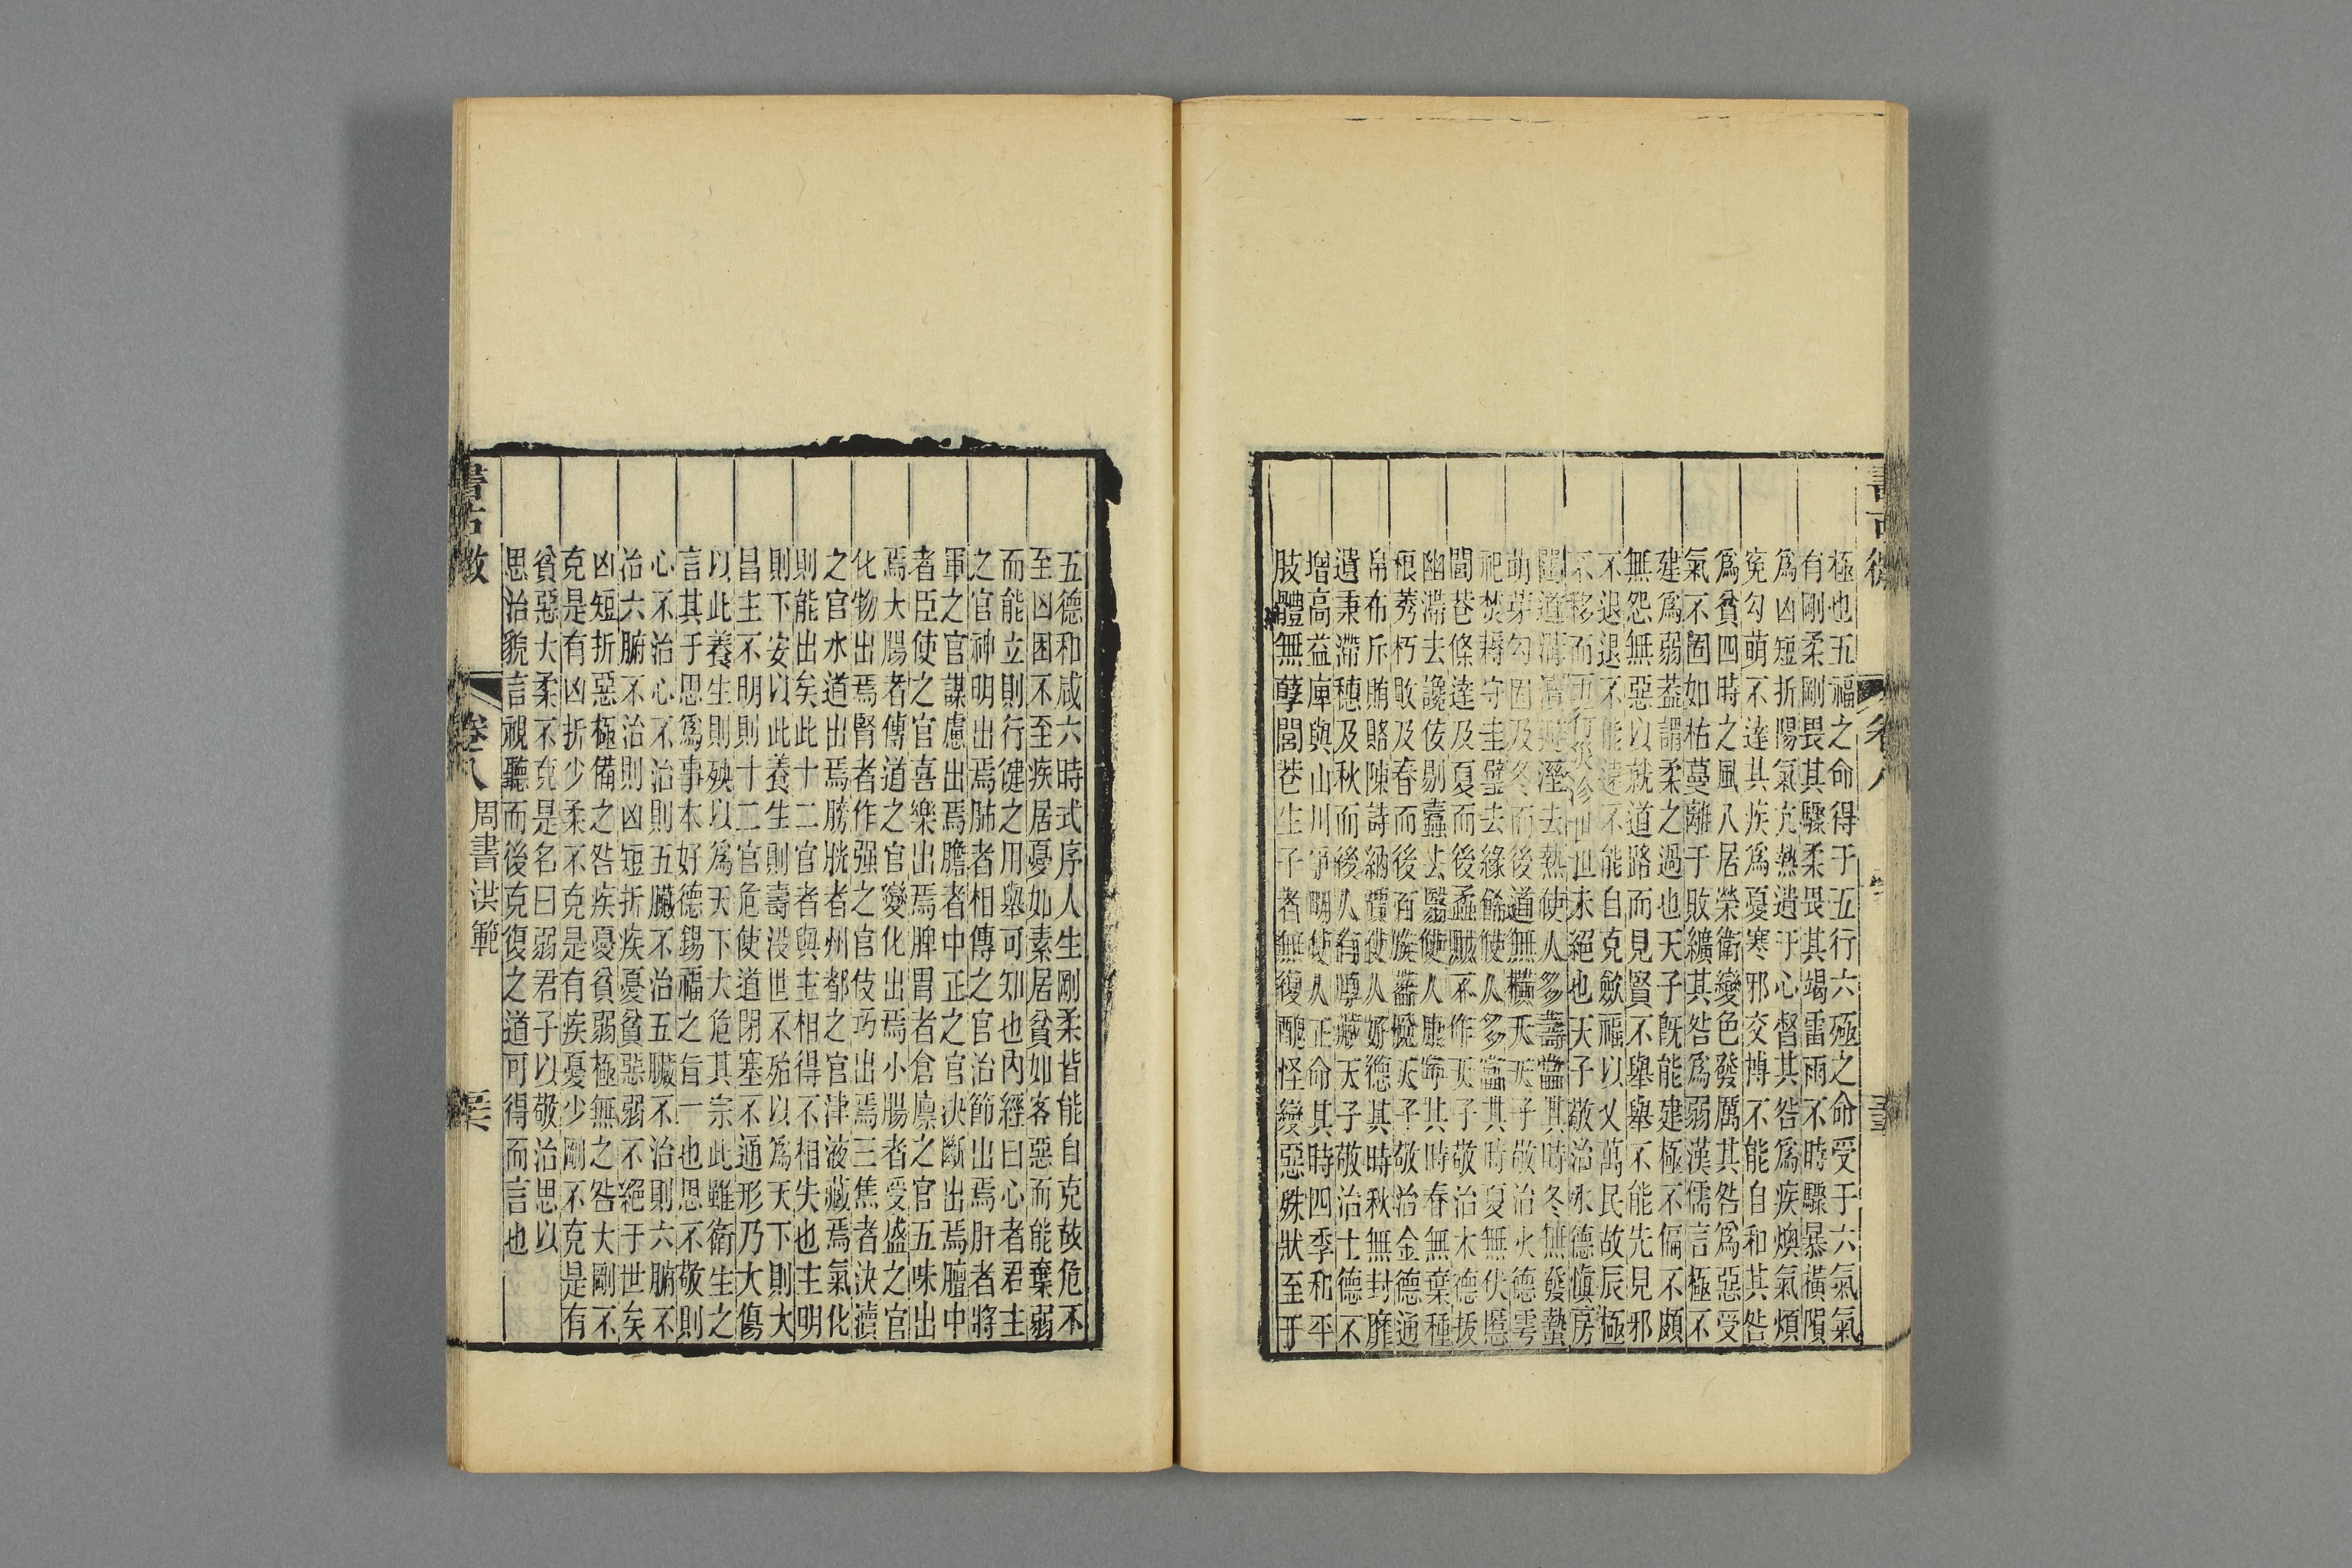 極也五福之命得于五行六殛之命受于六氣氣
有剛柔剛畏其驟柔畏其竭雷雨不時驟暴橫隕
爲凶短折陽氣亢熱遺于心督其咎爲疾燠氣煩
寃勾萌不達其疾爲憂寒邪交摶不能自和其咎
爲貧四時之風八居榮衛變色發厲其咎爲惡受
氣不固如枯蔓離于敗纊其咎爲弱漢儒言極不
建爲弱蓋謂柔之過也天子旣能建極不偏不頗
無怨無惡以就道路而見賢不舉舉不能先見邪
不退退不能遠不能自克歛福以乂萬民故辰極
不移而五 沴 世未絕也天子敬治水德愼房
道溝瀆 溼去熱使人多壽 其時冬無發蟄
萌芽勾固及冬而後道無橫夭天子敬治火德雩
祀焚 守圭璧去緣餙使人多富其時夏無伏慝
閭巷條達及夏而後孟 不作天子敬治木德拔
幽滯去讒佞剔蠹去翳使人康寧其時春無棄種
稂莠朽敗及春而後百族蕃 天子敬治金德通
帛布斥賄賂陳詩納 使人好德其時秋無封靡
遺秉滯穗及秋而後人有 藏天子敬治土德不
增高益庳與山川爭 使人正命其時四季和平
肢體無孽閭巷生子者無復醜怪變惡殊狀至于
書古微 卷八
五德和咸六時式序人生剛柔皆能自克故危不
至凶困不至疾居憂如素居貧如客惡而能棄弱
而能立則行健之用舉可知也內經曰心者君主
之官神明出焉肺者相傳之官治節出焉肝者將
軍之官謀慮出焉膽者中正之官決斷出焉膻中
者臣使之官喜樂出焉脾胃者倉廪之官五味出
焉大腸者傳道之官變化出焉小腸者受盛之官
化物出焉腎者作强之官伎巧出焉三焦者決瀆
之官水道出焉膀胱者州都之官津液藏焉氣化
則能出矣此十二官者與主相得不相失也主明
則下安以此養生則壽没世不殆以爲天下則大
昌主不明則十二官危使道閉塞不通形乃大傷
以此養生則殃以爲天下大危其宗此雖衛生之
言其于思爲事本好德錫福之旨一也思不敬則
心不治心不治則五臟不治五臟不治則六腑不
治六腑不治則凶短折疾憂貧惡弱不絕于世矣
凶短折惡極備之咎疾憂貧弱極無之咎大剛不
克是有凶折少柔不克是有疾憂少剛不克是有
貧惡大柔不克是名曰弱君子以敬治思以
思治貌言視聽而後克復之道可得而言也
書古微 卷八 周書洪範